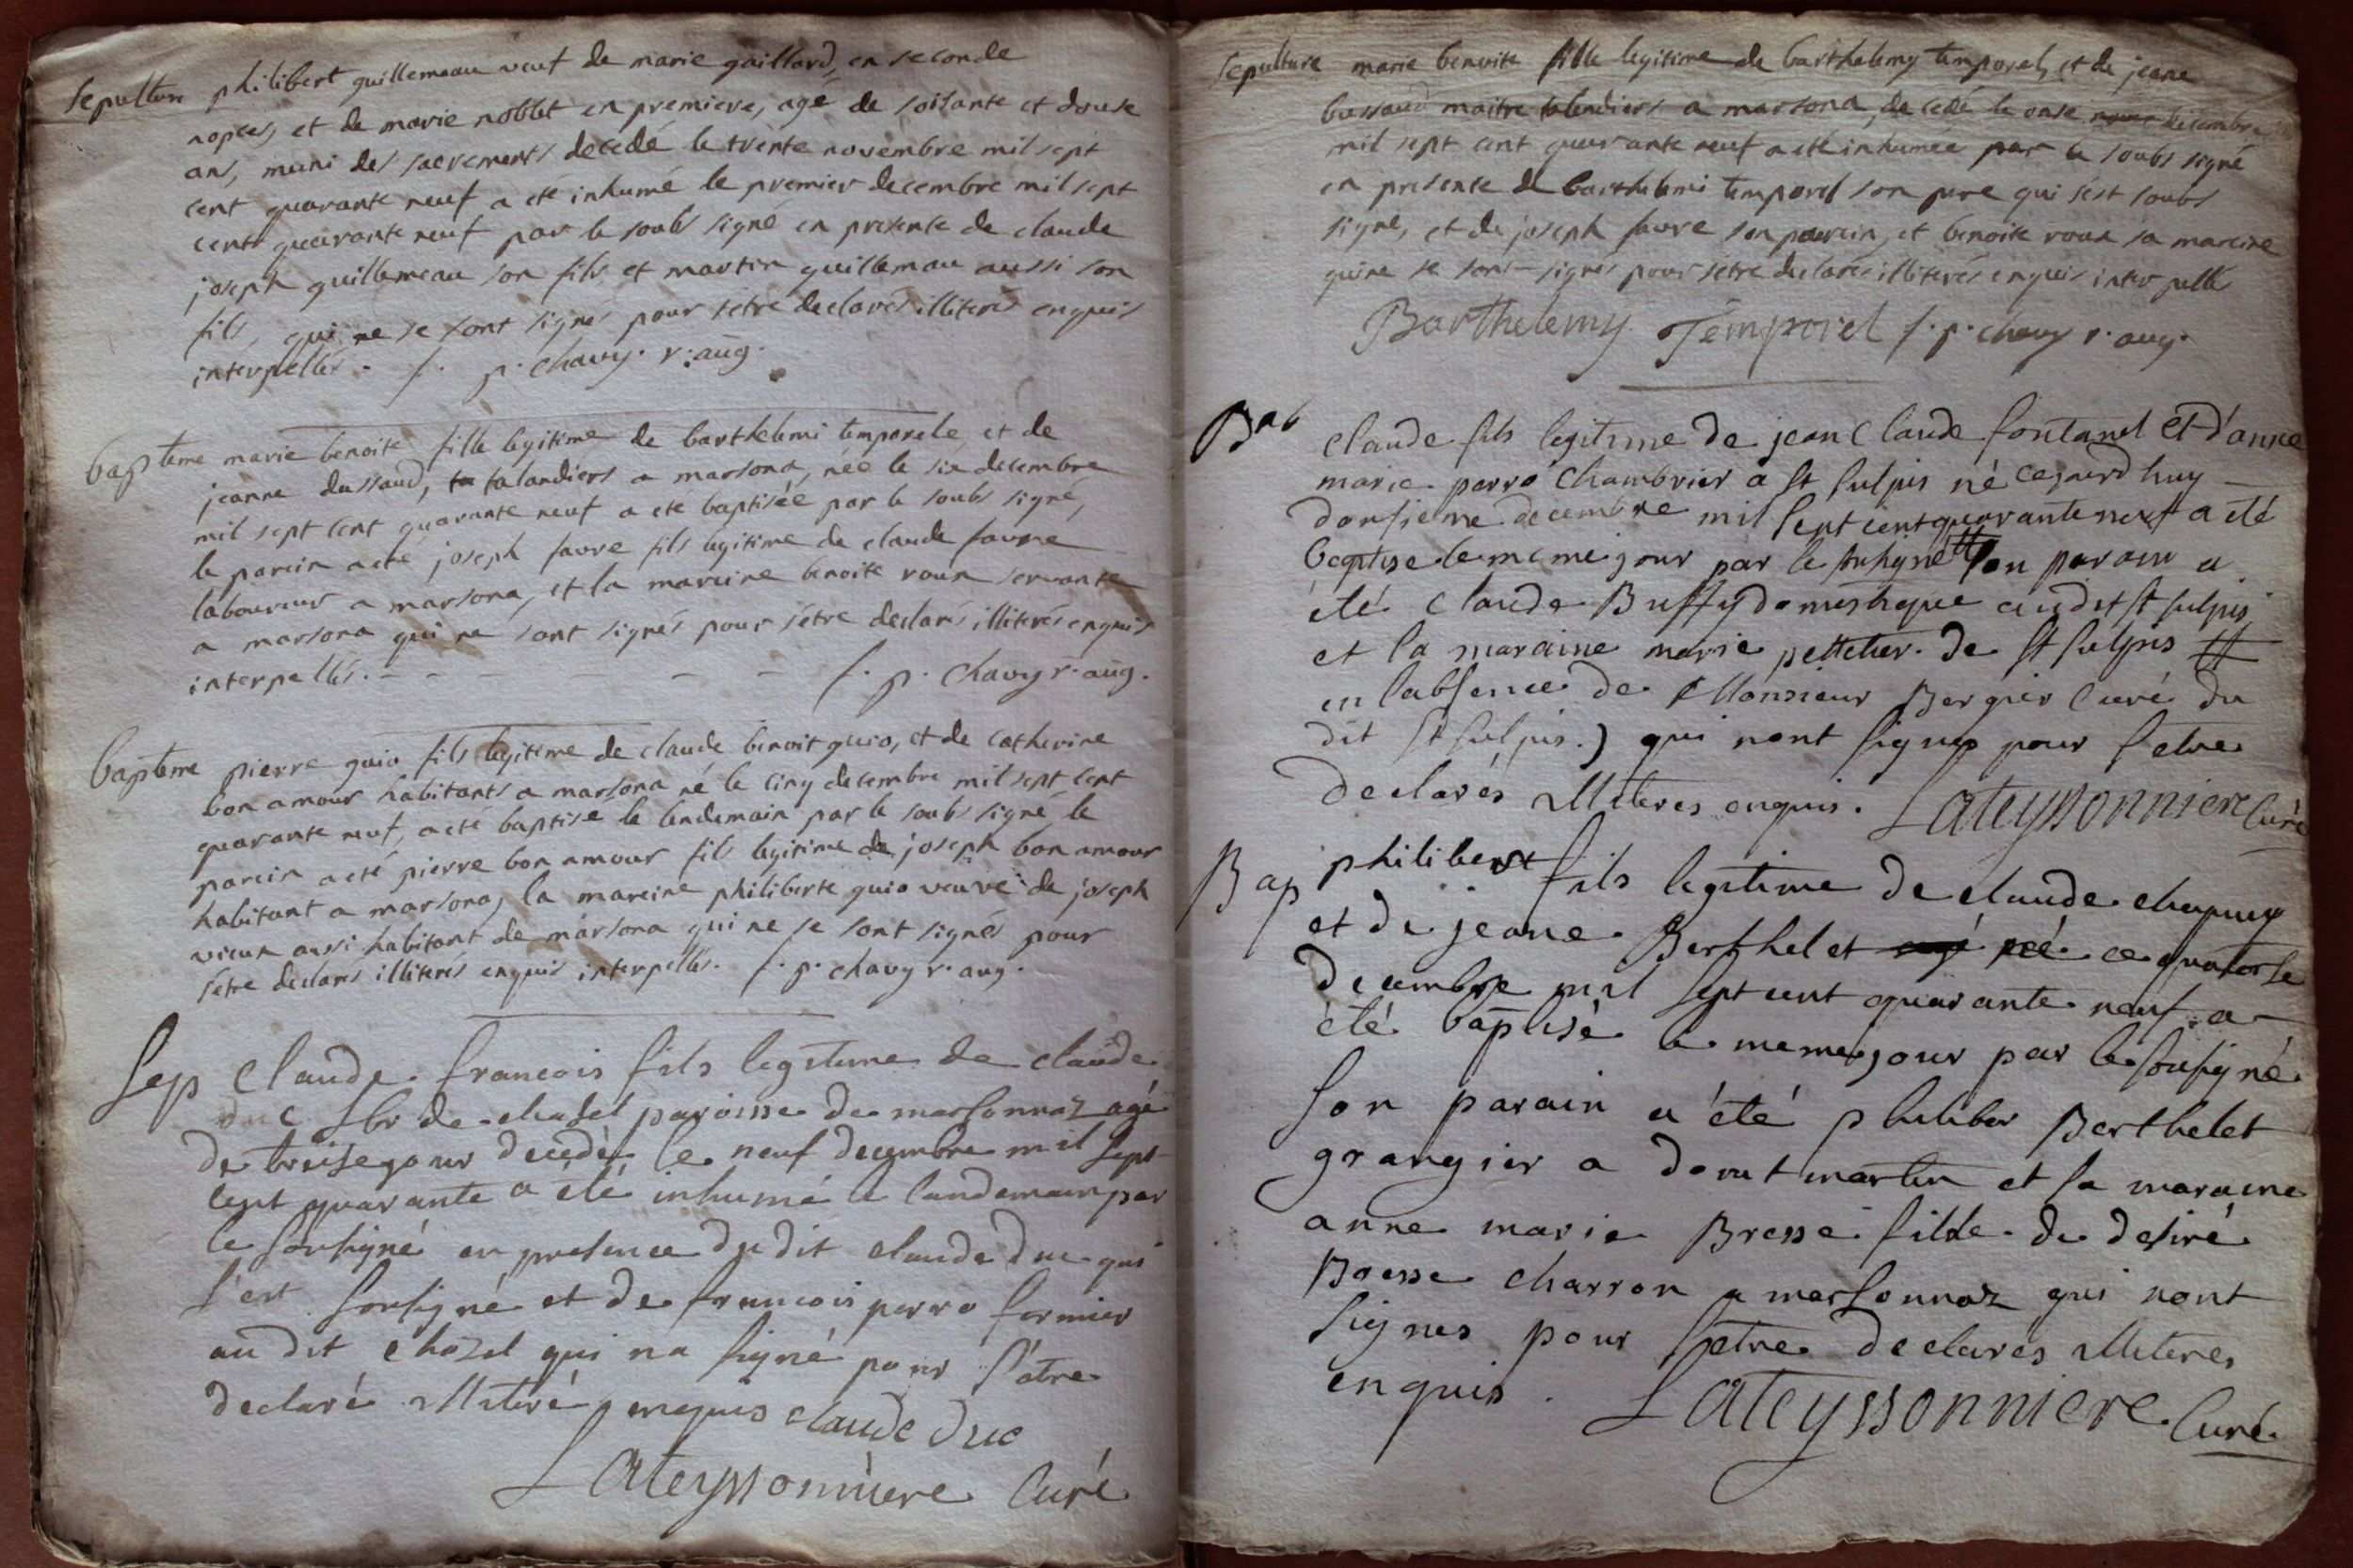 sepulture philibert guillemeau veuf de marie gaillard, en seconde
nopces, et de marie noblet en premiere, agé de soisante et douse
ans, muni des sacrements decedé le trente novembre mil sept
cent quarante neuf a eté inhumé le premier decembre mil sept
cent quarante neuf par le soubs signé en presence de claude
joseph guillemeau son fils et martin guillemau aussi son
fils, qui ne se sont signés pour sétre declarés illiterés enquis
interpellés. f. p. chavy. r. aug.
bapteme marie benoite fille legitime de barthelemi temporele et de
jeanne dussaud, talandiers a marsona, née le six decembre
mil sept cent quarante neuf a eté baptisée par le soubs signé,
le parein a eté joseph favre fils legitime de claude favre
laboureur a marsona, et la mareine benoite roux servante
a marsona qui ne sont signés pour sétre declarés illiterés enquis
interpellés. - - - - - - f. p. chavy r. aug.
bapteme pierre guio fils legitime de claude benoit guio, et de catherine
bon amour habitants a marsona né le cinq decembre mil sept cent
quarante neuf, a eté baptisé le lendemain par le soubs signé, le
parein a eté pierre bon amour fils legitime de joseph bon amour
habitant a marsona, la mareine philiberte guio veuve de joseph
vieux aussi habitant de marsona qui ne se sont signés pour
sétre declarés illiterés enquis interpellés. f. p. chavy r. aug.
Sep Claude francois fils legitime de claude
duc de chasel paroisse de marsonnaz agé
de treise jour decedé le neuf decembre mil sept
cent quarante a été inhumé le landemain par
le sousigné en presence dudit claude duc qui
s'est sousigné et de francois perro fermier
au dit chazel qui na signé pour s'etre
declaré illiteré enquis claude duc
Lateyssonniere Curé
sepulture marie benoite fille legitime de barthelemy temporel, et de jeane
dussaud maitre talandiers a marsona, decedé le onse decembre
mil sept cent quarante neuf a eté inhumée par le soubs signé
en presence de barthelemi temporel son pere qui sést soubs
signé, et de joseph favre son parein, et benoite roux sa mareine
qui ne se sont signés pour sétre declarés illiterés enquis interpellés
Barthelemy Temporel f. p. chavy r. aug.
Bab claude fils legitime de jean Claude fontanel et d'anne
marie perro chambrier a st sulpis né cejourdhuy
dousieme decembre mil sept cent quarante neuf a eté
baptise le meme jour par le son parain a
été claude Buffy domestique audit st sulpis
et la maraine marie pelletier de st sulpis #
en l'absence de Monsieur Bergier Curé du
dit st sulpis.) qui nont signés pour setre
declarés illiteres enquis. Lateyssonniere Curé
Bap philibert fils legitime de claude chapuy
et de jeane Berthelet né ce quatorse
decembre mil sept cent quarante neuf a
été baptisé le meme jour par le sousigné
son parain a été philiber Berthelet
grangier a domt martin et sa maraine
anne marie Bresse fille de desiré
Bresse charron a marsonnaz qui nont
signes pour setre declarés illiteres
enquis. Lateyssonniere Curé